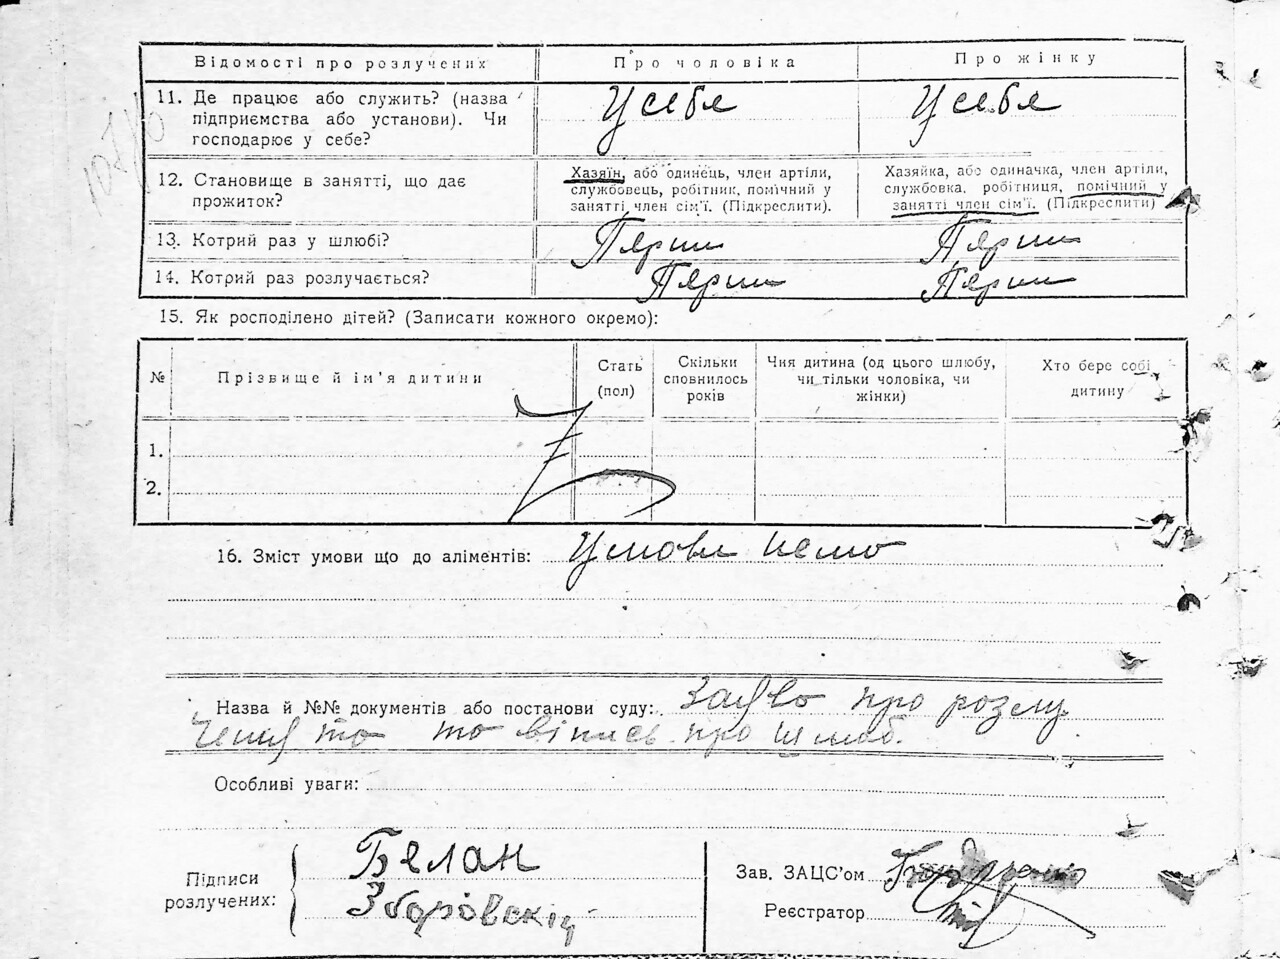 Відомості про розлучених Про чоловіка Про жінку
11. Де працює або служить? (назва
підприємства або установи). Чи
господарює у себе?
У себе У себе
12. Становище в занятті, що дає
прожиток?
Хазяїн, або одинець, член артіли,
службовець, робітник, помічний у
занятті член сім'ї. (Підкреслити).
Хазяйка, або одиначка, член артіли,
службовка, робітниця, помічний у
занятті член сім'ї. (Підкреслити)
13. Котрий раз у шлюбі? Пярши Пярши
14. Котрий раз розлучається? Пярши Пярши
15. Як росподілено дітей? (Записати кожного окремо):
№ Прізвище й ім'я дитини
Стать
(пол)
Скільки
сповнилось
років
Чия дитина (од цього шлюбу,
чи тільки чоловіка, чи
жінки)
Хто бере собі
дитину
1.
2.
16. Зміст умови що до аліментів: Умови немо
Назва й №№ документів або постанови суду: Заяво про розлу
чення то то вібпись про шлюб.
Особливі уваги:
Підписи
розлучених:
Белан
Зборовскій
Зав. ЗАЦС'ом
Реєстратор